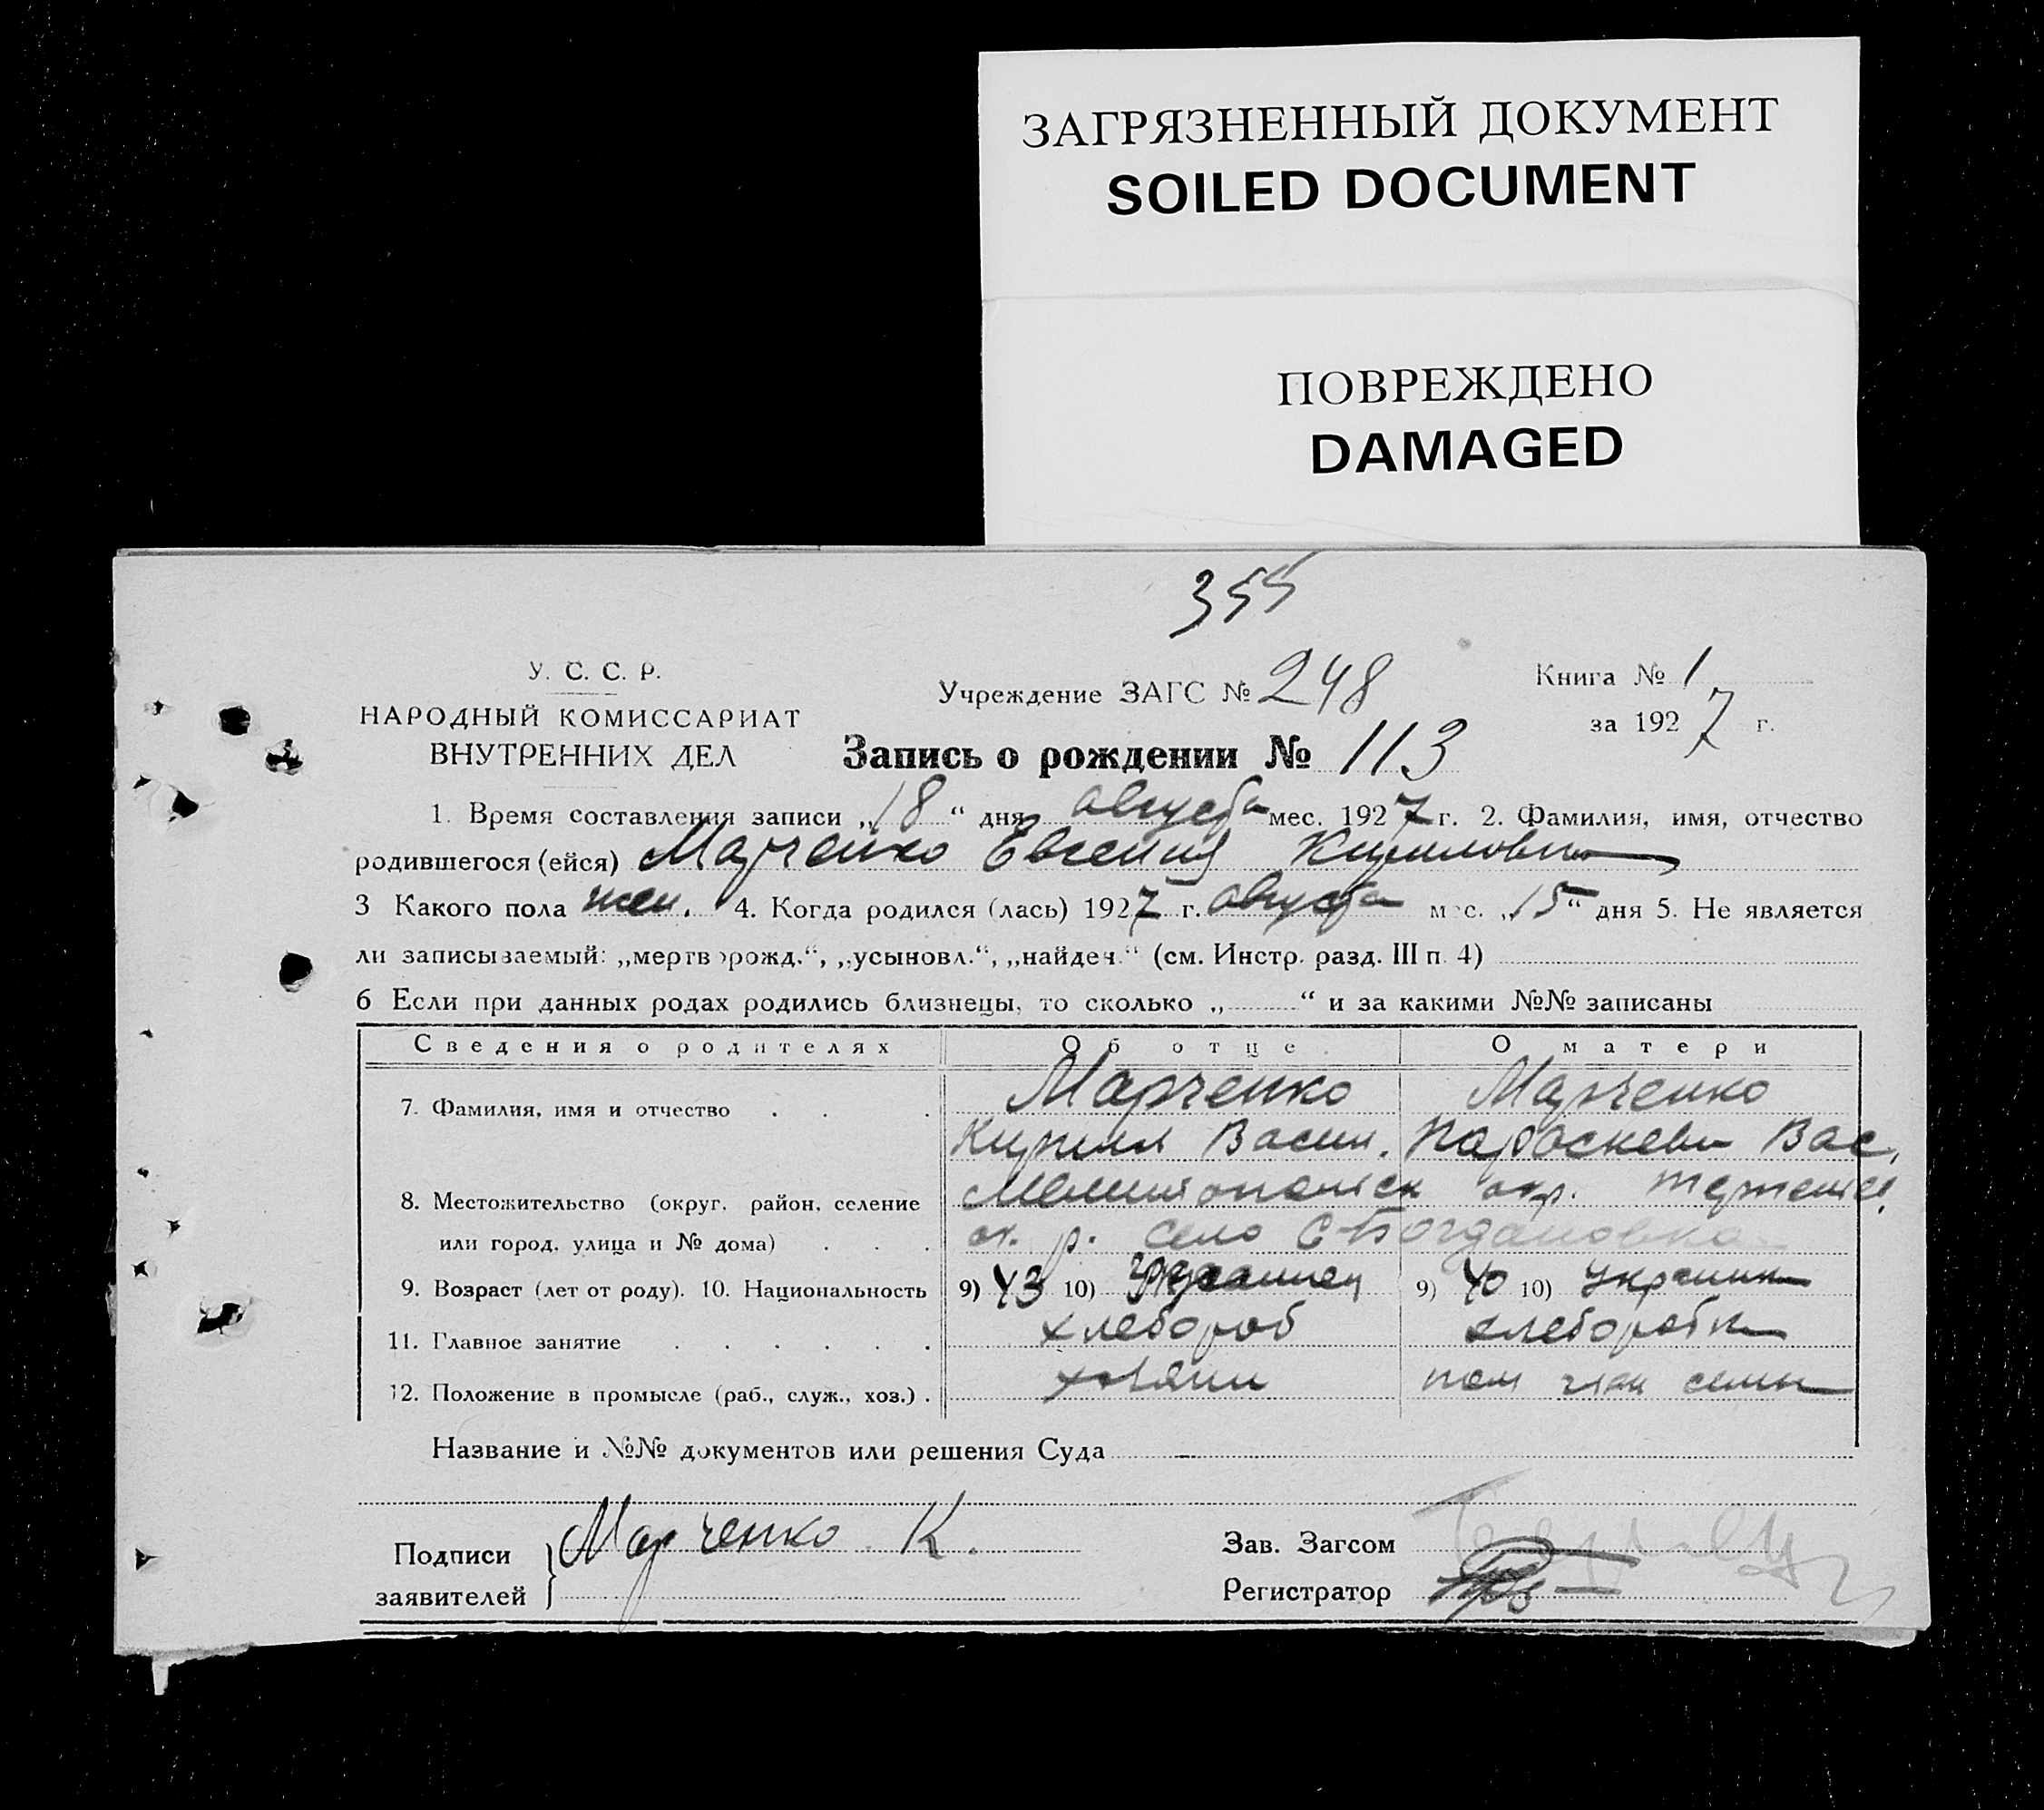 ЗАГРЯЗНЕННЫЙ ДОКУМЕНТ
SOILED DOCUMENT
ПОВРЕЖДЕНО
DAMAGED
355
У. С. С. Р.
НАРОДНЫЙ КОМИССАРИАТ
ВНУТРЕННИХ ДЕЛ
Учреждение ЗАГС № 248
Книга № 1
за 1927 г.
Запись о рождении № 113
1. Время составления записи „18“ дня августа мес. 1927 г. 2. Фамилия, имя, отчество
родившегося (ейся) Марченко Евгения Кириловна
3 Какого пола жен. 4. Когда родился (лась) 1927 г. августа мес. „15“ дня 5. Не является
ли записываемый: „мертворожд.“, „усыновл.“, „найден.“ (см. Инстр. разд. III п. 4)
6 Если при данных родах родились близнецы, то сколько „ “ и за какими №№ записаны
Сведения о родителях Об отце О матери
7. Фамилия, имя и отчество Марченко Марченко
Кирилл Васил. Параскева Вас.
8. Местожительство (округ, район, селение Мелитопольск окр.
или город, улица и № дома) р. село С-Богдановка
9. Возраст (лет от роду). 10. Национальность 9) 43 10) Украинец 9) 40 10) Украинка
11. Главное занятие хлебороб хлеборобка
12. Положение в промысле (раб., служ., хоз.) хозяин пом член семьи
Название и №№ документов или решения Суда
Подписи
заявителей
Марченко К.
Зав. Загсом
Регистратор